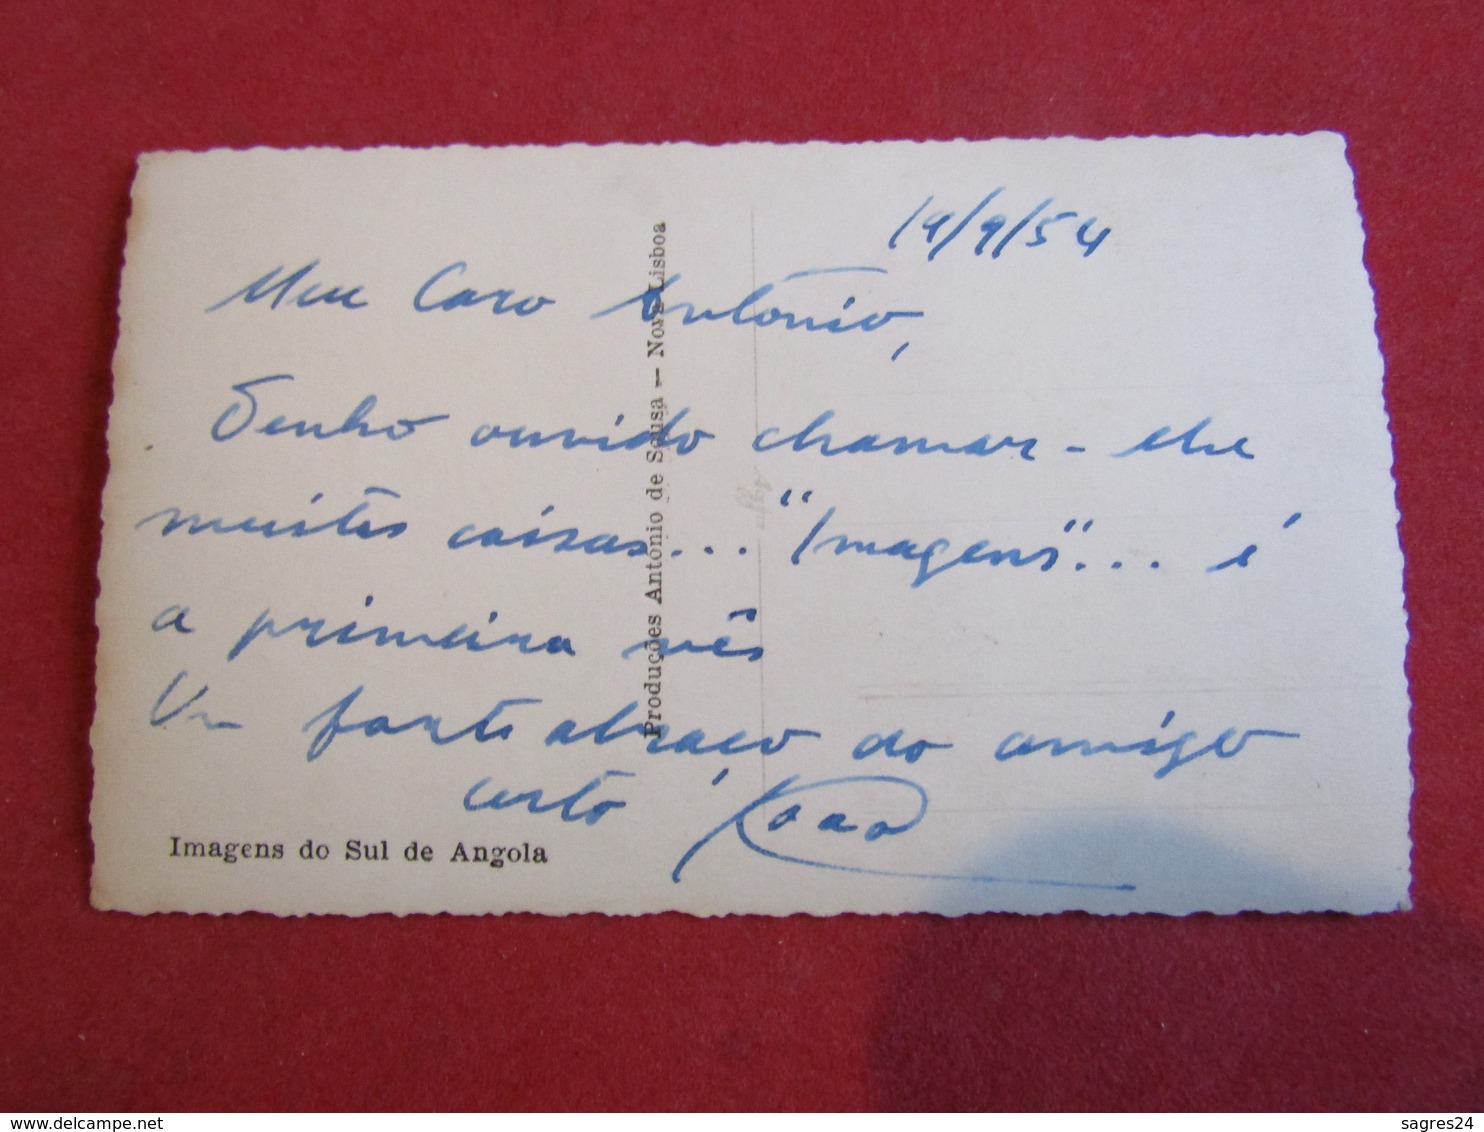 19/9/54
Meu Caro António,
Tenho ouvido chamar-lhe
muitas coisas... "Imagens"... é
a primeira vês
Um forte abraço do amigo
certo João
Imagens do Sul de Angola
Produções António de Sousa — Nova Lisboa
delcampe.net
sagres24